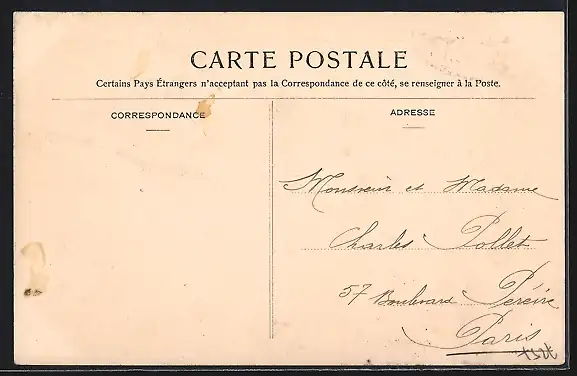 CARTE POSTALE
Certains Pays Étrangers n'acceptant pas la Correspondance de ce côté, se renseigner à la Poste.
CORRESPONDANCE
ADRESSE
Monsieur et Madame
Charles Pollet
57 Boulevard Péreire
Paris